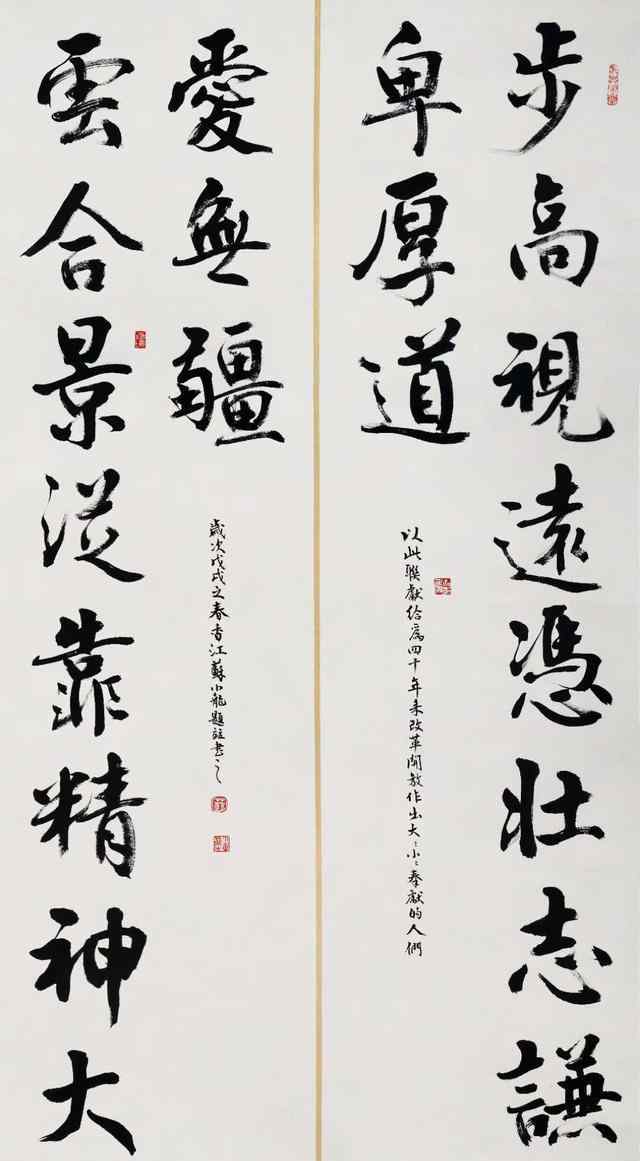 步高視遠憑壯志謙
卑厚道
以此聯獻給為四十年來改革開放作出大〻小〻奉獻的人們
雲合景從靠精神大
愛無疆
歲次戊戌之春香江蘇小龍題書之